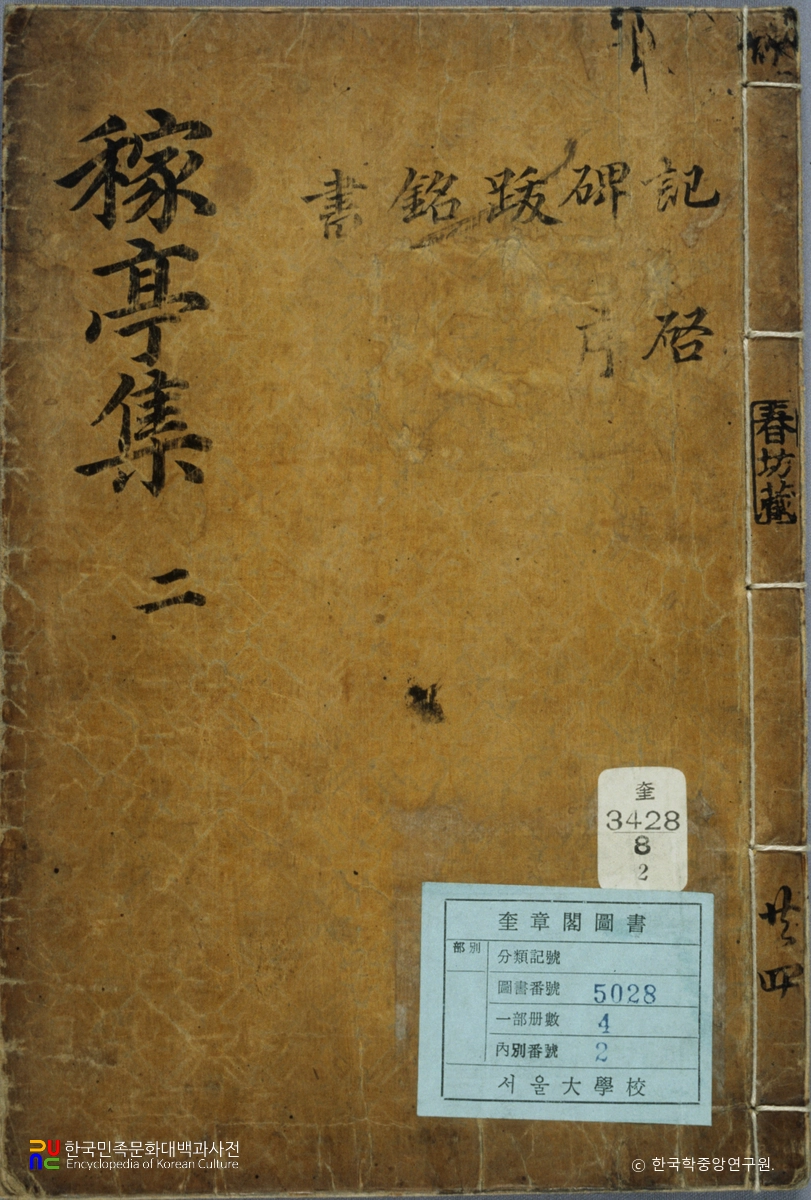 稼亭集 二
記 碑 跋 銘 書
啓
序
春坊藏
共四
奎
3428
8
2
奎章閣圖書
部別
分類記號
圖書番號 5028
一部册數 4
內別番號 2
서울大學校
한국민족문화대백과사전
Encyclopedia of Korean Culture
© 한국학중앙연구원.